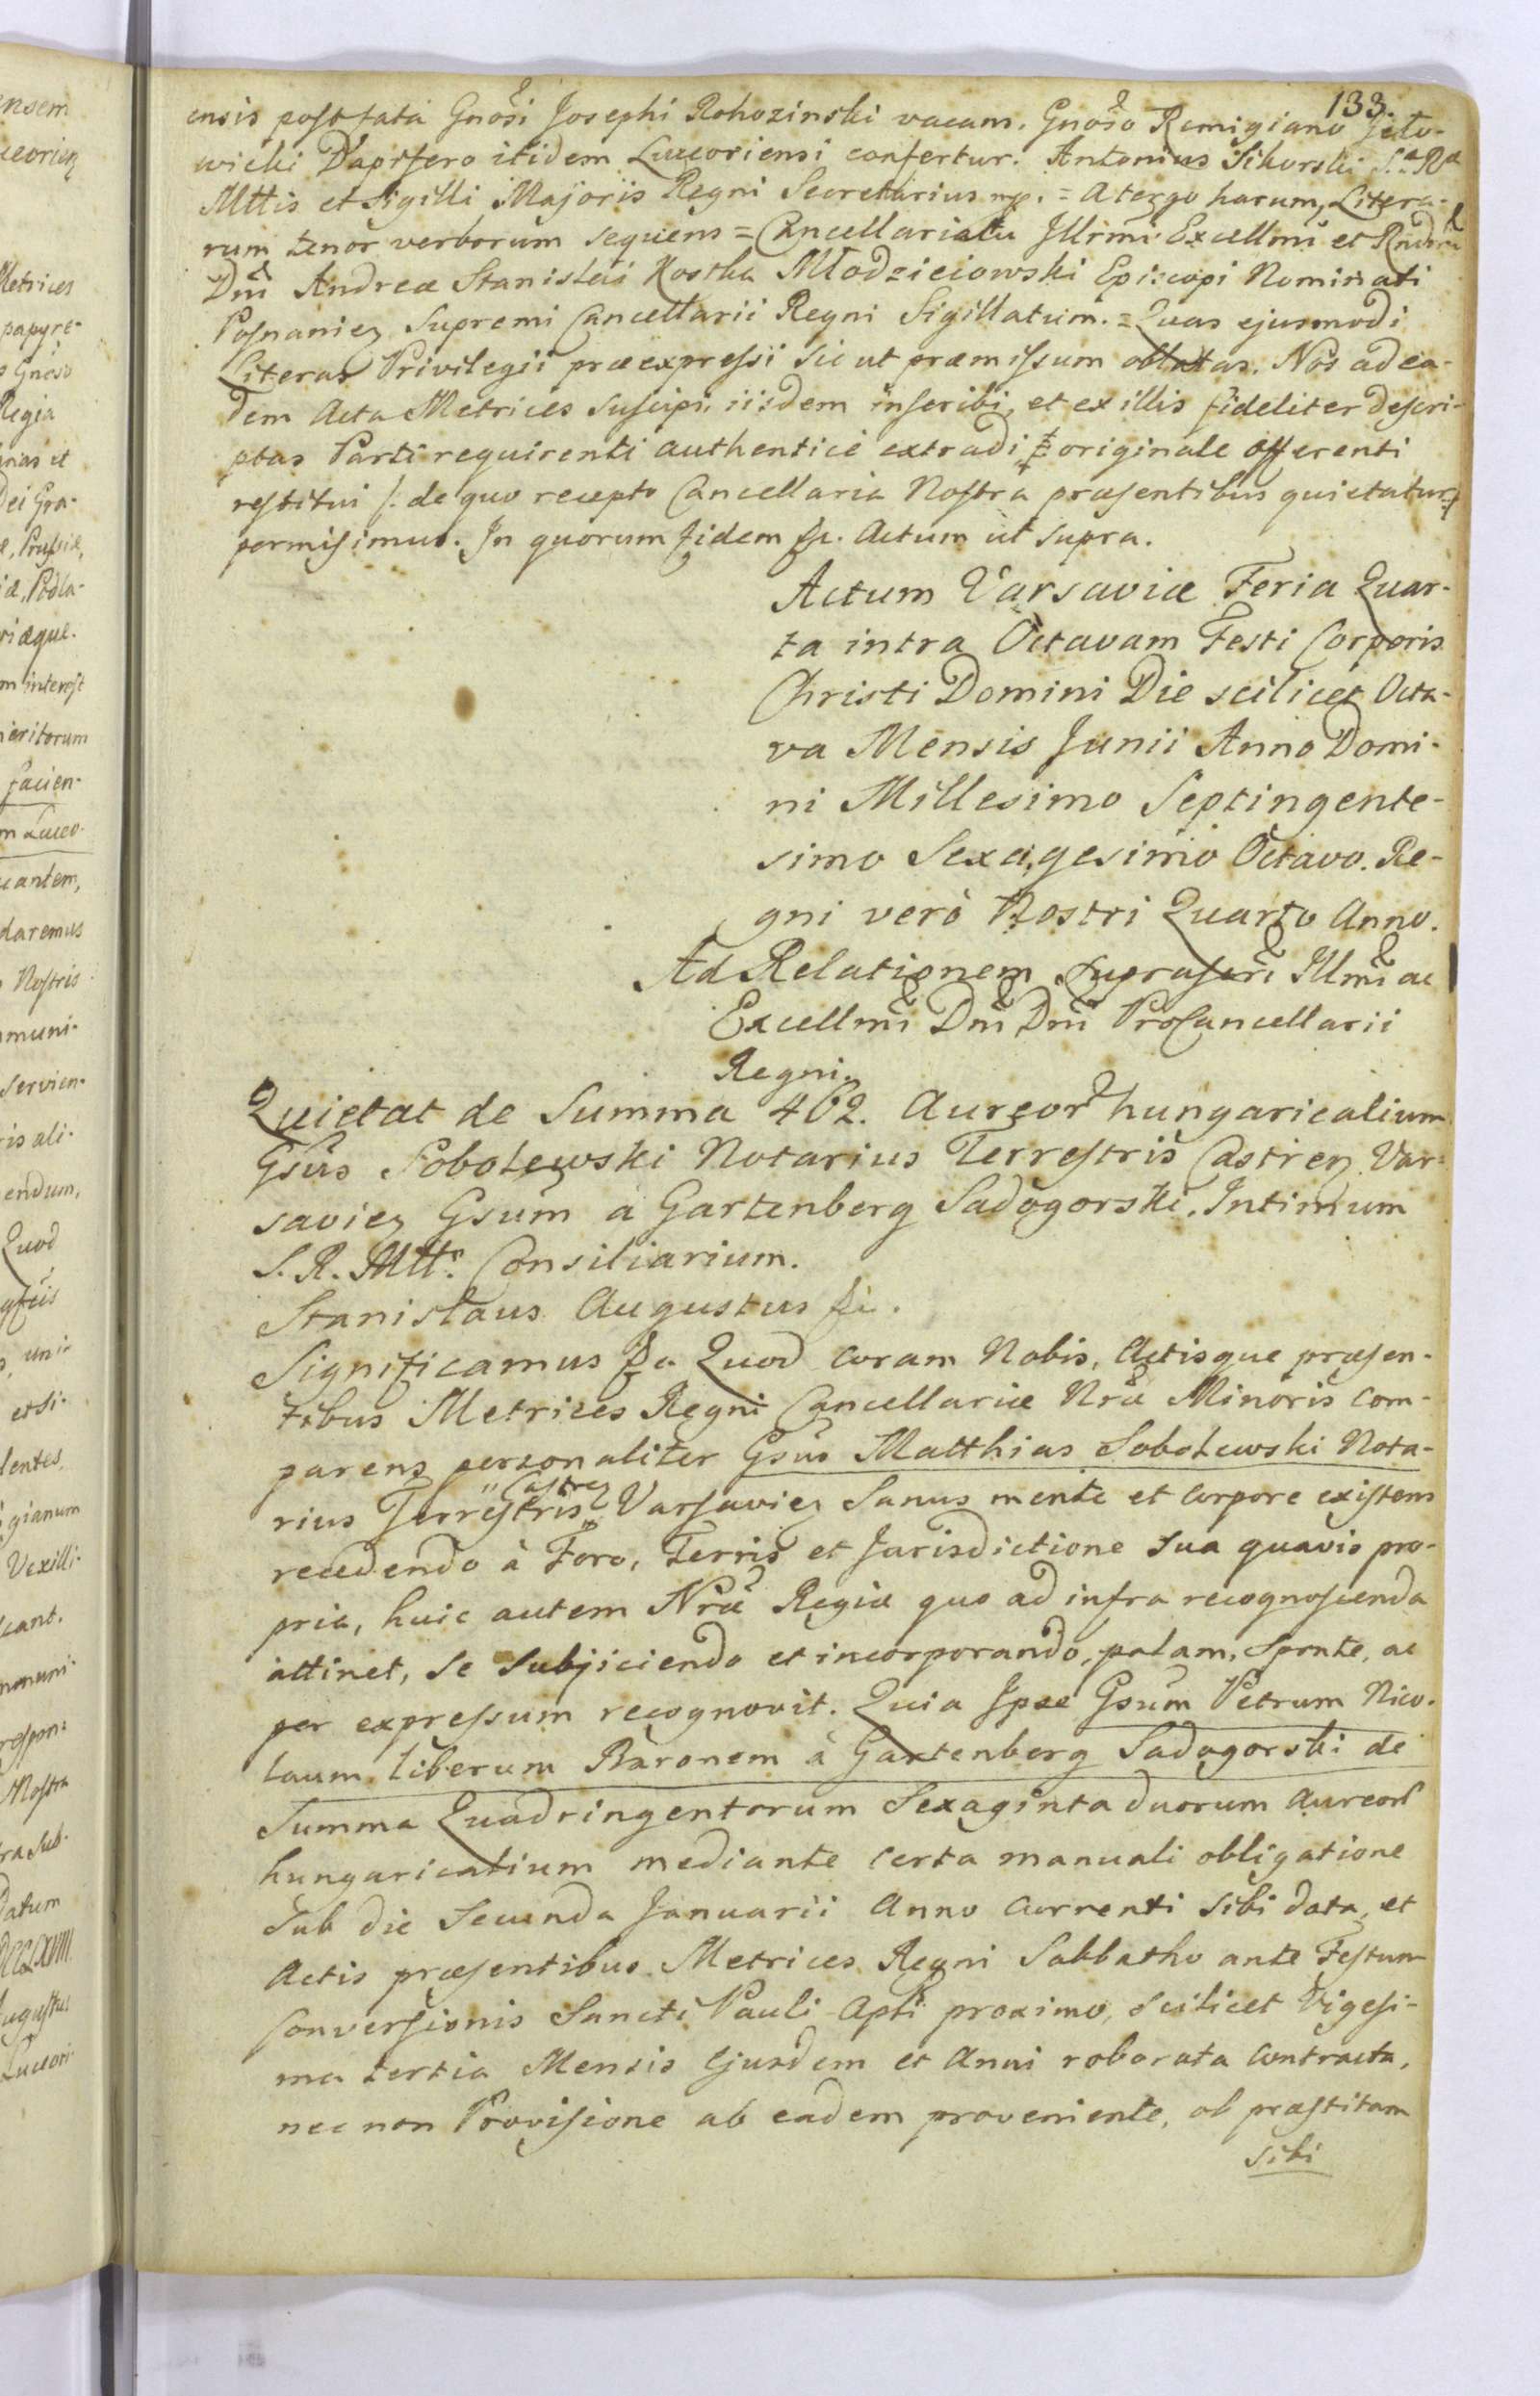 133.
ensis post fata Gnosi Josephi Rohozinski vacam. Gnoso Remigiano Jeło-
wicki Dapifero itidem Luceoriensi confertur. Antonius Sikorski S.æ R.æ
Mttis et Sigilli Majoris Regni Secretarius mp. = A tergo harum, Litera-
rum tenor verborum sequens = Cancellariatu Illrmi Excellmi et Rndmi
Dni Andreæ Stanislai Kostka Młodzieiowski Episcopi Nominati
Posnanien Supremi Cancellarii Regni Sigillatum. = Quas ejusmodi
Literas Privilegii præexpressi sic ut præmissum oblatas. Nos ad ea-
dem Acta Metrices suscipi, iisdem inscribi, et ex illis fideliter descri-
ptas Parti requirenti authenticè extradi et originale offerenti
restitui /: de quo recepto Cancellaria Nostra præsentibus quietatur :/
permisimus. In quorum fidem &c. Actum ut supra.
Actum Varsaviæ Feria Quar-
ta intra Octavam Festi Corporis
Christi Domini Die scilicet Octa-
va Mensis Junii Anno Domi-
ni Millesimo Septingente-
simo Sexagesimo Octavo. Re-
gni verò Nostri Quarto Anno.
Ad Relationem suprascri Illmi ac
Excellmi Dni Dni ProCancellarii
Regni.
Quietat de Summa 462. Aureor hungaricalium
Gsus Sobolewski Notarius Terrestris Castren Var-
savien Gsum à Gartenberg Sadogorski, Intimum
S. R. Mtts Consiliarium.
Stanislaus Augustus &c.
Significamus &c. Quod coram Nobis, Actisque præsen-
tibus Metrices Regni Cancellariæ Nræ Minoris com-
parens personaliter Gsus Matthias Sobolewski Nota-
rius Terrestris Castren Varsavien Sanus mente et corpore existens
recedendo à Foro, Terris et Jurisdictione sua quavis pro-
pria, huic autem Nræ Regiæ quo ad infra recognoscenda
attinet, se subjiciendo et incorporando, palam, sponte, ac
per expressum recognovit. Quia Ipse Gsum Petrum Nico-
laum liberum Baronem à Gartenberg Sadogorski de
Summa Quadringentorum Sexaginta duorum Aureor
hungaricalium mediante certa manuali obligatione
sub die Secunda Januarii Anno Currenti sibi data, et
Actis præsentibus Metrices Regni Sabbatho ante Festum
Conversionis Sancti Pauli Apti proximo, scilicet Vigesi-
ma tertia Mensis Ejusdem et Anni roborata contracta,
nec non Provisione ab eadem proveniente, ob præstitam
sibi